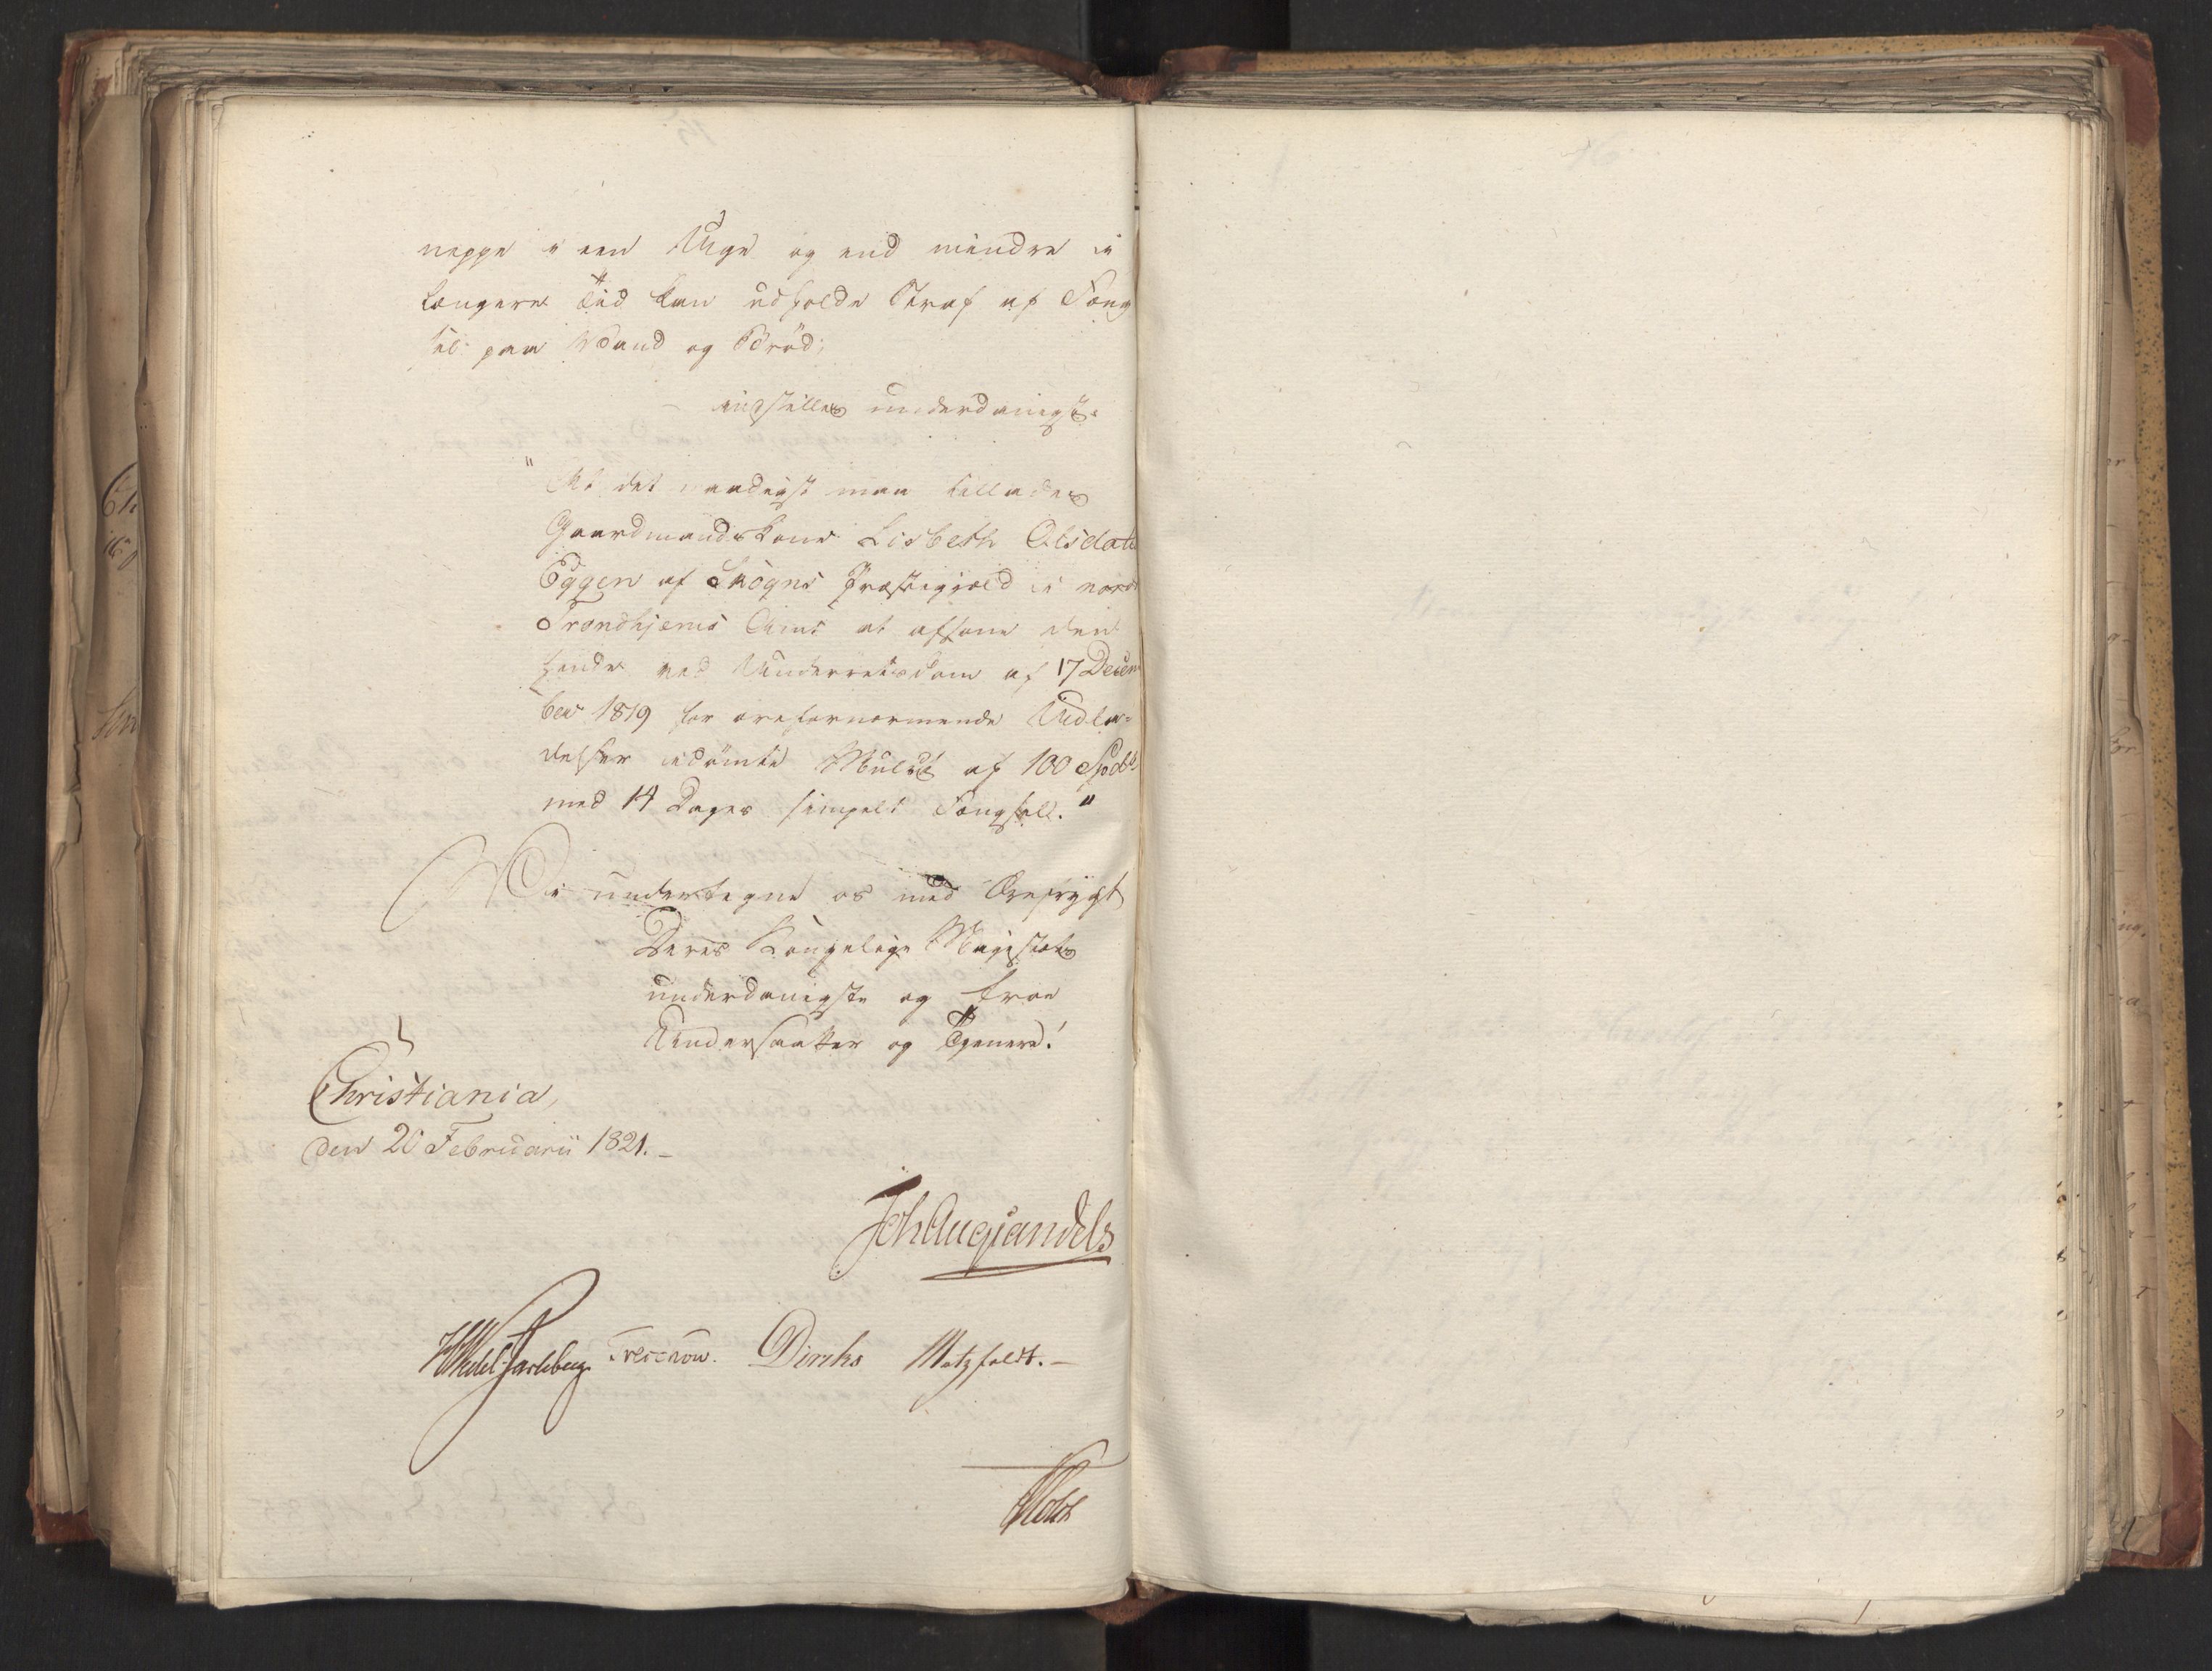 neppe i een Uge og end mindre i
længere Tid kan udholde Straf af Fæng
sel paa Vand og Brød;
indstilles underdanigst:
"At det naadigst maa tillades
Gaardmandskone Lisbeth Olsdatter
Eggen af Skogns Præstegjæld i nordre
Trondhjems Amt at afsone den
hende ved Underretsdom af 17 Decem
ber 1819 for ærefornærmende Udla-
delser idømte Mulct af 100 Spdlr
med 14 Dages simpelt Fængsel."
Vi undertegne os med Ærefrygt
Deres Kongelige Majestæts
underdanigste og troe
Undersaatter og Tjenere!
Christiania,
den 20 Februarii 1821. -
Joh Aug Sandels
HWedel Jarlsberg Treschow. Diriks Motzfeldt. -
Holst